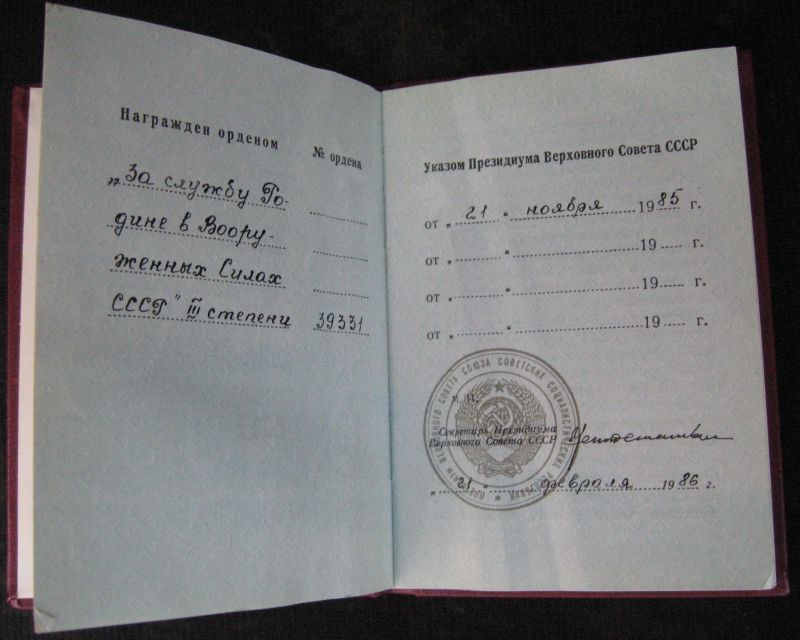 Награжден орденом
№ ордена
„За службу Ро-
дине в Воору-
женных Силах
СССР" III степени 39331
Указом Президиума Верховного Совета СССР
от „ 21 " ноября 1985 г.
от „ " 19 г.
от „ " 19 г.
от „ " 19 г.
ПРЕЗИДИУМ ВЕРХОВНОГО СОВЕТА СОЮЗА СОВЕТСКИХ СОЦИАЛИСТИЧЕСКИХ РЕСПУБЛИК
М. П.
Секретарь Президиума
Верховного Совета СССР
„ 21 " февраля 1986 г.